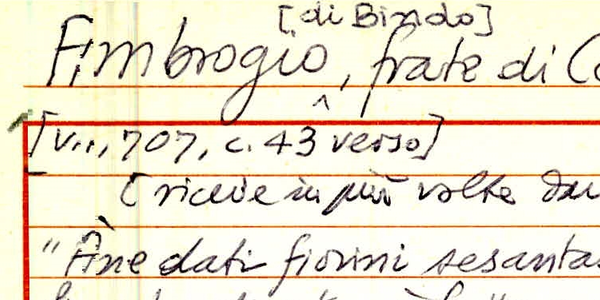 [di Bindo]
F. Ambrogio, frate di
[VII, 707, c. 43 verso]
(riceve in più volte
"Àne dati fiorini sesanta